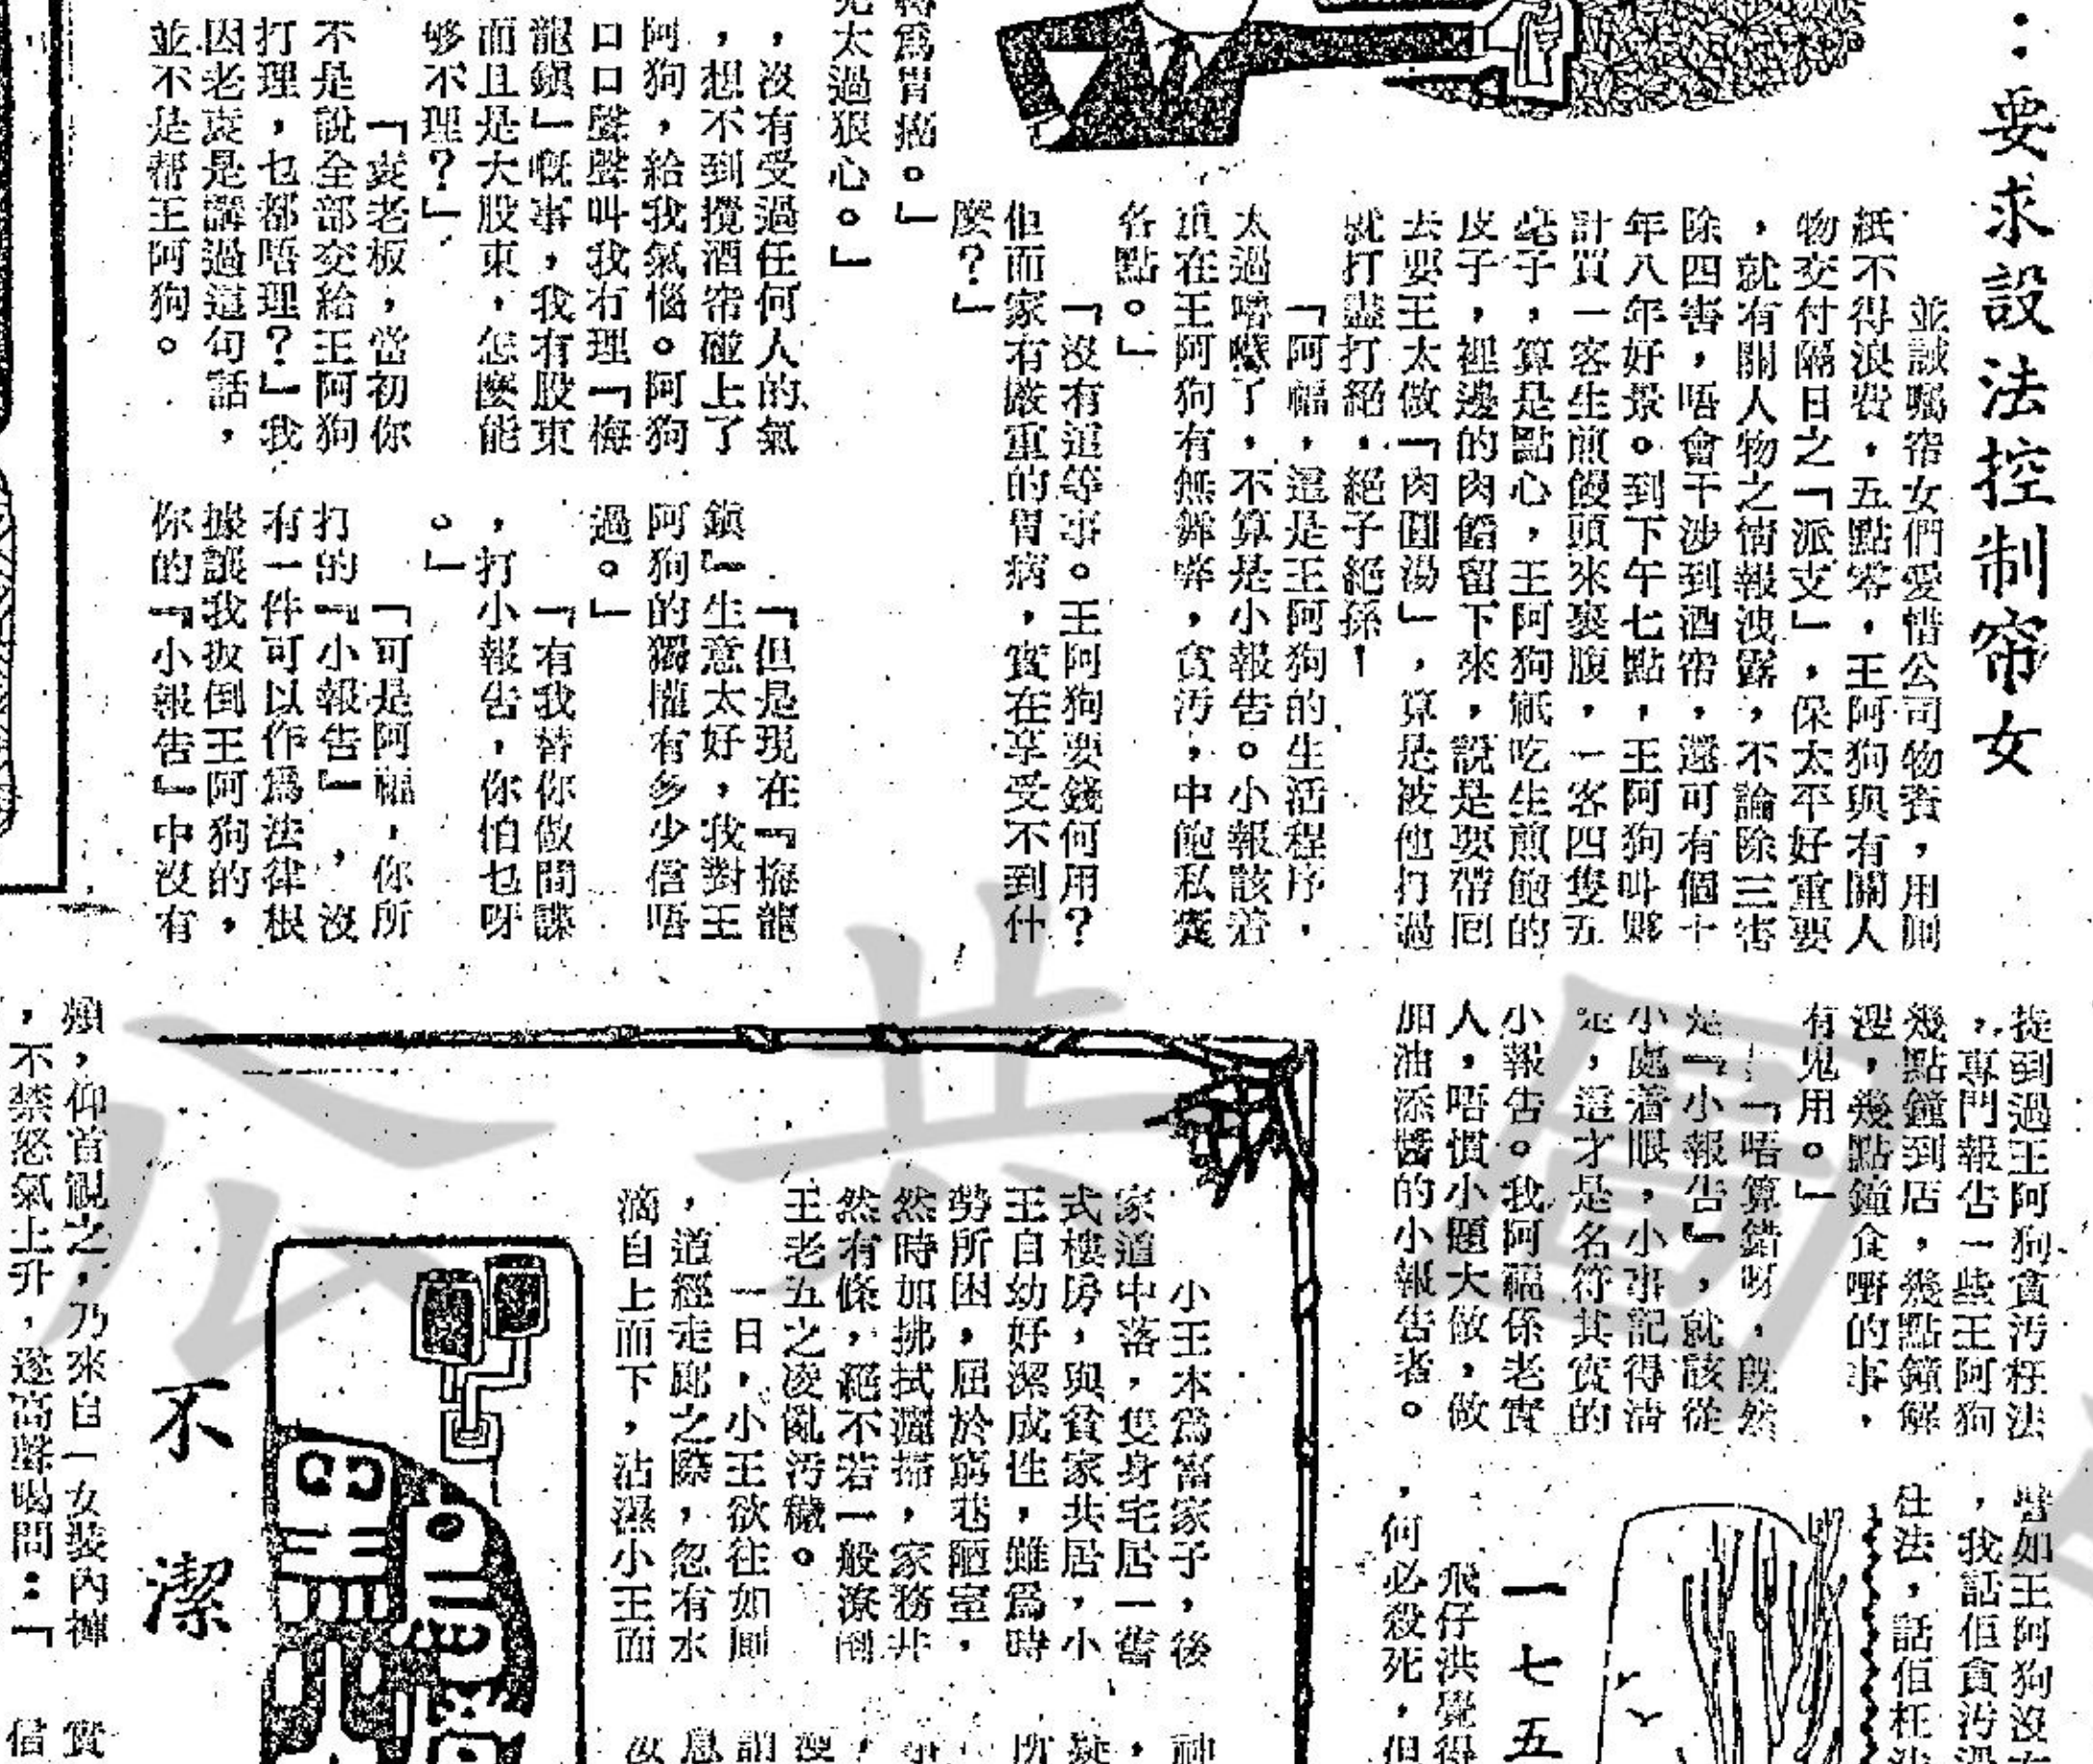 ：要求設法控制帘女
並誠囑帘女們愛惜公司物資，用則
紙不得浪費，五點零，王阿狗與有關人
物交付隔日之「派支」，保太平好重要
，就有關人物之情報洩露，不論除三害
除四害，唔會干涉到酒帘，還可有個十
年八年好景。到下午七點，王阿狗叫夥
計買一客生煎饅頭來裹腹，一客四隻五
毫子，算是點心，王阿狗祇吃生煎飽的
皮子，裡邊的肉餡留下來，說是要帶回
去要王太做「肉圓湯」，算是被他打過
就打盡打絕，絕子絕孫！
「阿福，還是王阿狗的生活程序，
太過嚕囌了，不算是小報告。小報該着
重在王阿狗有無舞弊，貪汚，中飽私囊
各點。」
「沒有這等事。王阿狗要錢何用？
佢而家有嚴重的胃病，實在享受不到什
麼？」
爲胃癌。」
太過狠心。」
，沒有受過任何人的氣
，想不到攪酒帘碰上了
阿狗，給我氣惱。阿狗
口口聲聲叫我冇理「梅
龍鎮」嘅事，我有股東
而且是大股東，怎麼能
够不理？」
「袁老板，當初你
不是說全部交給王阿狗
打理，乜都唔理？」我
因老袁是講過這句話，
並不是帮王阿狗。
「但是現在『梅龍
鎮』生意太好，我對王
阿狗的獨權有多少信唔
過。」
「有我替你做間諜
，打小報告，你怕乜呀
。」
「可是阿福，你所
打的『小報告』，沒
有一件可以作爲法律根
據讓我扳倒王阿狗的，
你的『小報告』中沒有
提到過王阿狗貪汚枉法
，專門報告一些王阿狗
幾點鐘到店，幾點鐘解
溲，幾點鐘食嘢的事，
有鬼用。」
「唔算錯呀，旣然
是『小報告』，就該從
小處着眼，小事記得淸
，這才是名符其實的
小報告。我阿福係老實
人，唔慣小題大做，做
加油添醬的小報告者。
譬如王阿狗沒
，我話佢貪汚
法，話佢枉
一七五
飛仔洪覺得
，何必殺死，但
小王本爲富家子，後
家道中落，隻身宅居一舊
式樓房，與貧家共居，小
王自幼好潔成性，雖爲時
勢所困，屈於窮巷陋室，
然時加拂拭灑掃，家務井
然有條，絕不若一般潦倒
王老五之凌亂汚穢。
一日，小王欲往如厠
，道經走廊之際，忽有水
滴自上而下，沾濕小王面
不潔
頰，仰首覌之，乃來自一女裝內褲
，不禁怒氣上升，遂高聲喝問：「
實
信